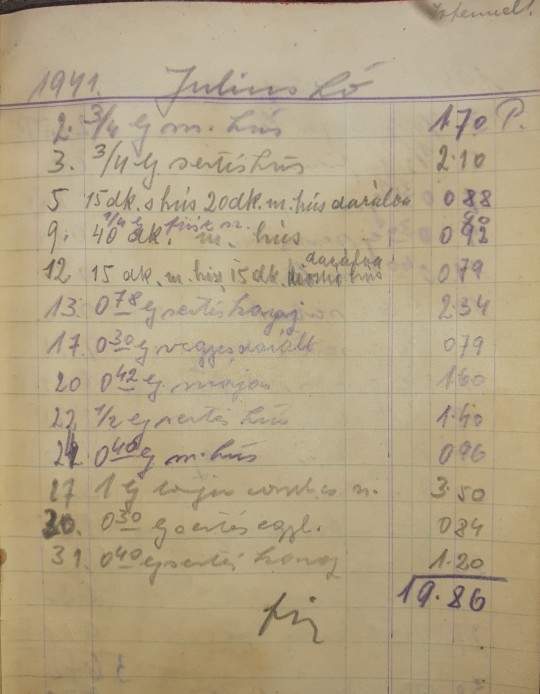 1941. Julius hó
2. 3/4 kg m. hús 1.70 P.
3. 3/4 kg sertéshús 2.10
5 15 dk. s hús 20 dk. m. hús darálva 0 88
1/4 kg 90
9. 40 dk. m. hús 0 92
darálva
12 15 dk. m. hús, 15 dk. hús 0 79
13. 0 78 kg sertés karaj 2.34
17. 0 30 kg vegyes darált 0 79
20 0 42 kg 1.60
22 1/2 kg sertés hús 1.40
24 0 40 kg m. hús 0 96
27 1 kg 3.50
30. 0 30 kg sertés 0 84
31. 0 40 kg sertés karaj 1.20
19.86